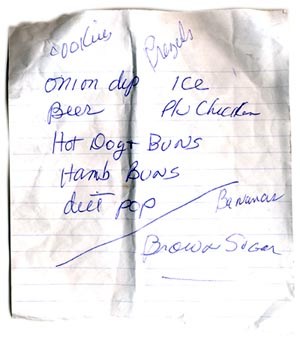 Cookies Prezels
onion dip ICE
Beer Pk Chicken
Hot Dog + BUNS
Hamb BUNS
diet pop
Bananas
Brown Suger